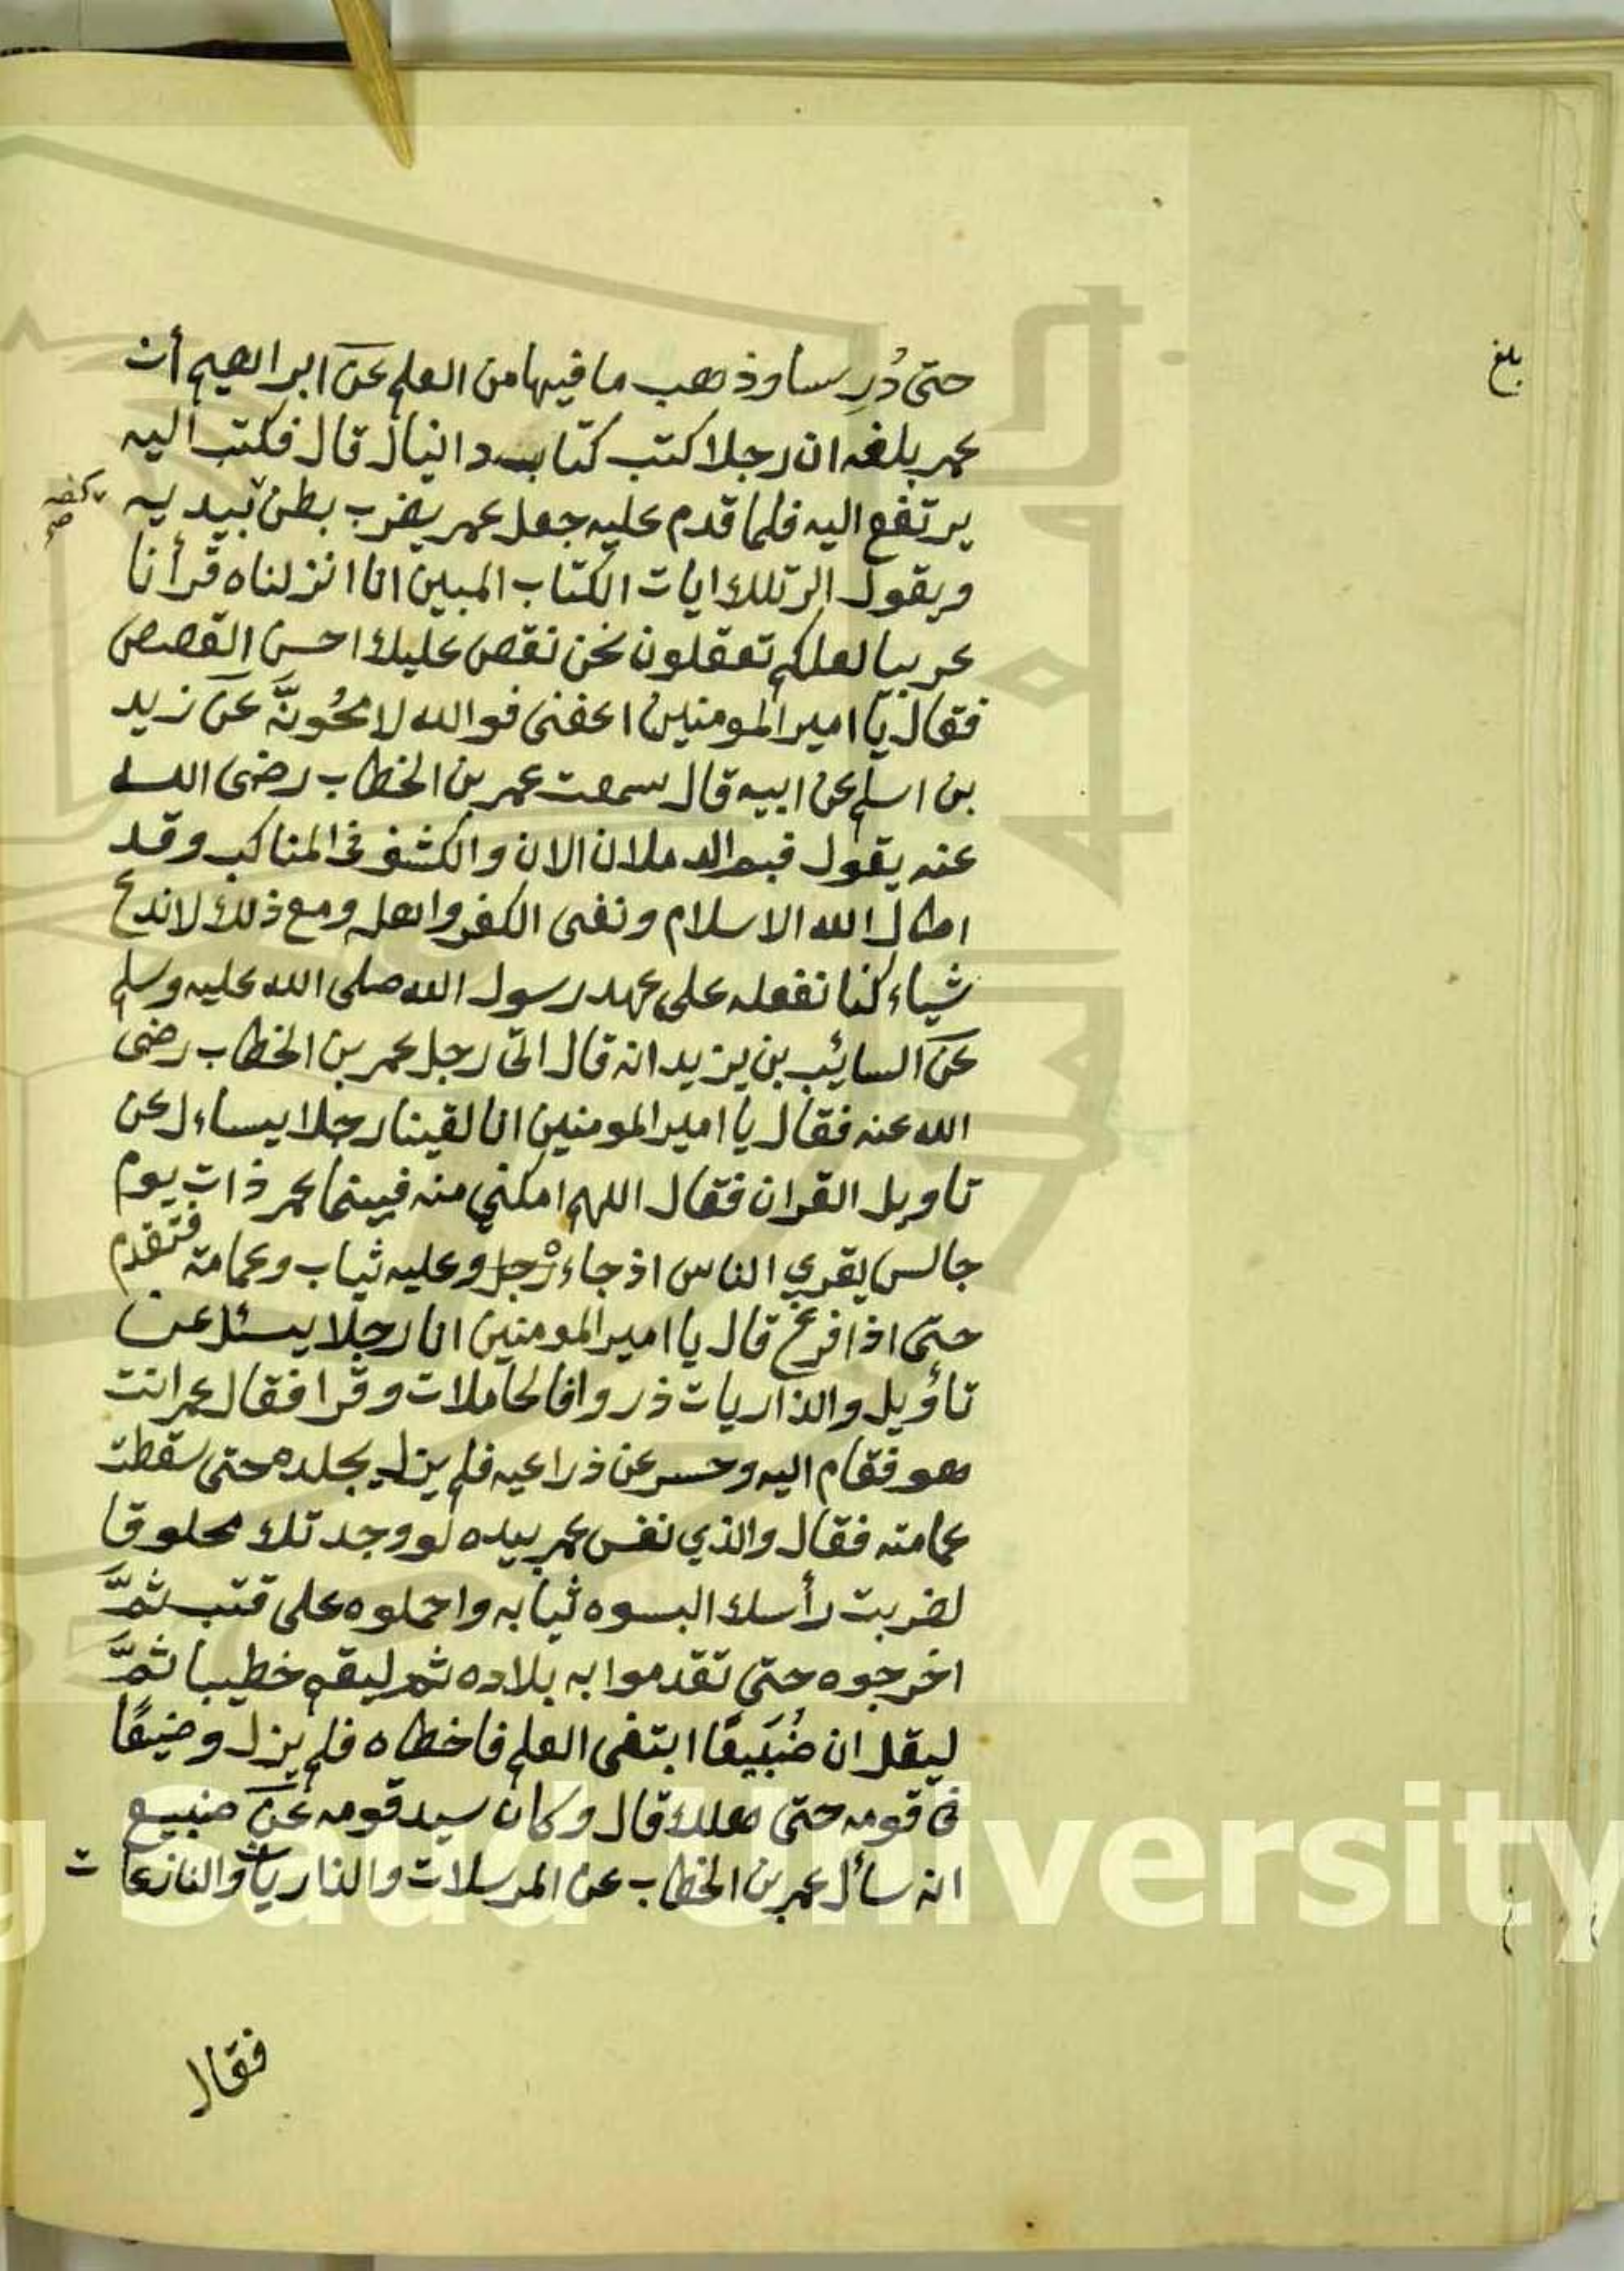 بلغ
حتى دُرِسا وذهب ما فيها من العلم عن ابراهيم أن
عمر بلغه ان رجلا كتب كتاب دانيال قال فكتب اليه
يرتفع اليه فلما قدم عليه جعل عمر يضرب بطن بيديه
كفه صح
ويقول الر تلك ايات الكتاب المبين انا انزلناه قرأنا
عربيا لعلكم تعقلون نحن نقص عليك احسن القصص
فقال يا امير المومنين اعفنى فوالله لامحُونَّه عن زيد
بن اسلم عن ابيه قال سمعت عمر بن الخطاب رضى الله
عنه يقول الان والكشف فى المناكب وقد
اطال الله الاسلام ونفى الكفر واهله ومع ذلك لاندع
شياء كنا نفعله على عهد رسول الله صلى الله عليه وسلم
عن السائب بن يزيد انه قال اتى رجل عمر بن الخطاب رضى
الله عنه فقال يا امير المومنين انا لقينا رجلا يساءل عن
تاويل القران فقال اللهم امكني منه فبينما عمر ذات يوم
جالس يقري الناس اذ جاء رجل وعليه ثياب وعمامة فتقدم
حتى اذا فرغ قال يا امير المومنين انا رجلا يسئل عن
تأويل والذاريات ذروا فالحاملات وقرا فقال عمر انت
هو فقام اليه وحسر عن ذراعيه فلم يزل يجلده حتى سقطت
عمامته فقال والذي نفس عمر بيده لو وجدتك محلوقا
لضربت رأسك البسوه ثيابه واحملوه على قتب ثمَّ
اخرجوه حتى تقدموا به بلاده ثم ليقم خطيبا ثمَّ
ليقل ان ضُبَيعًا ابتغى العلم فاخطاه فلم يزل وضيعًا
فى قومه حتى هلك قال وكان سيد قومه عن ضبيع
انه سأل عمر بن الخطاب عن المرسلات والذاريات والنازعات
فقال
King Saud University